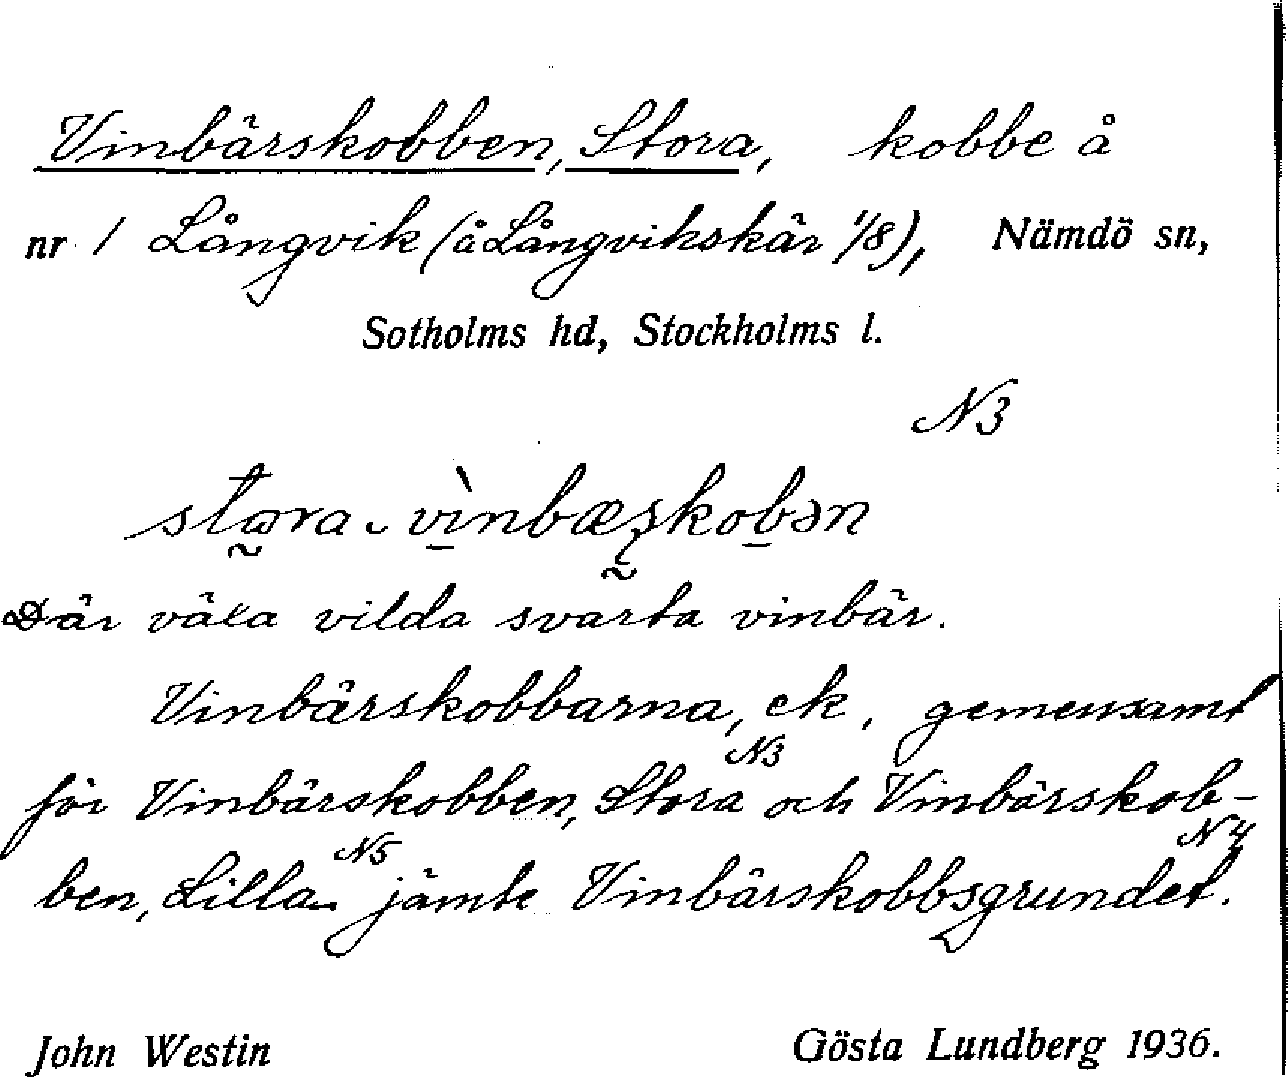 Vinbärskobben, Stora, kobbe å
nr 1 Långvik (å Långvikskär 1/8), Nämdö sn,
Sotholms hd, Stockholms l.
N3
stɷra vìnbæʂkobən
Där växa vilda svarta vinbär.
Vinbärskobbarna, ek, gemensamt
N3
för Vinbärskobben, Stora och Vinbärskob-
N5 N4
ben, Lilla jämte Vinbärskobbsgrundet.
John Westin Gösta Lundberg 1936.